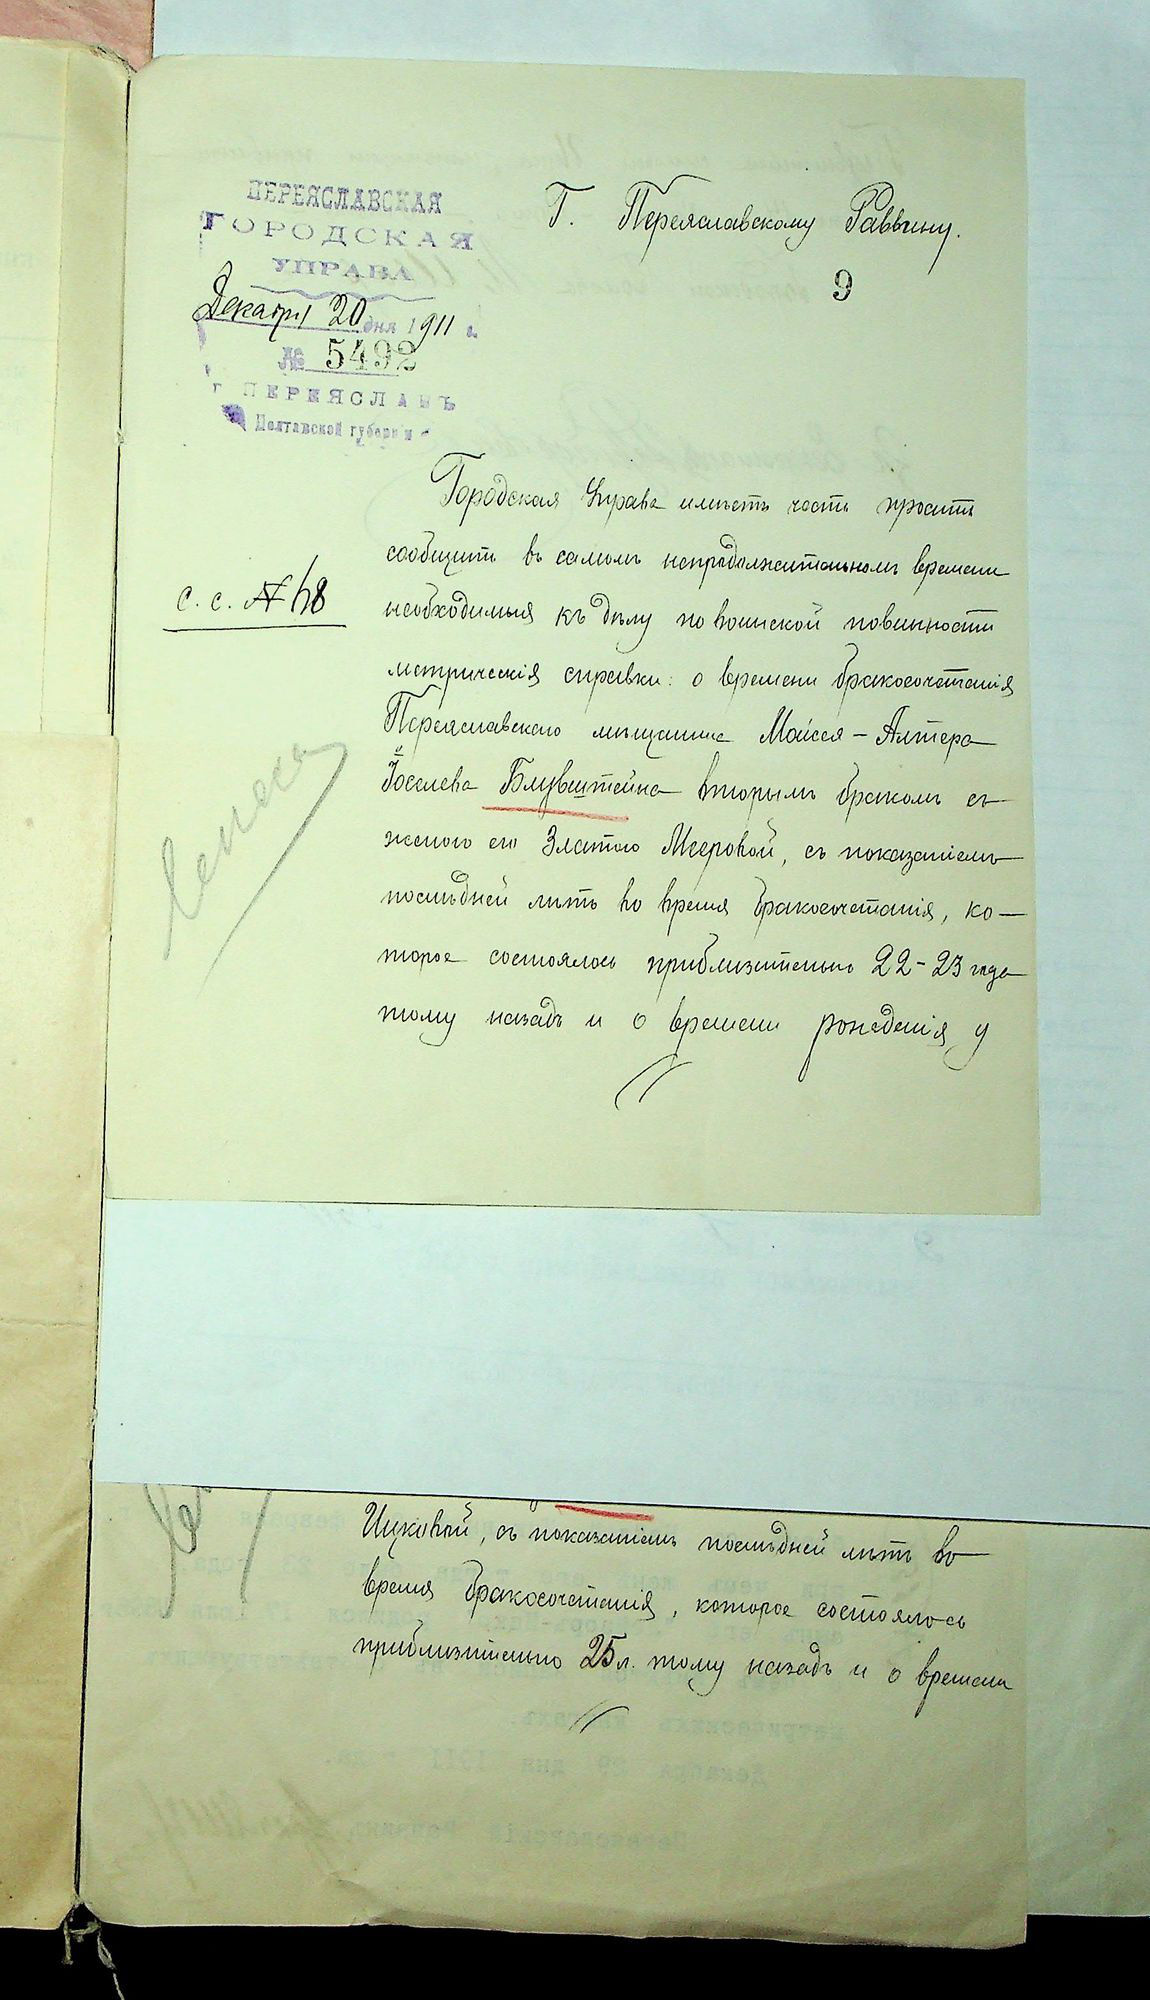 ПЕРЕЯСЛАВСКАЯ
ГОРОДСКАЯ
УПРАВА
Декабря 20 дня 1911 г.
№ 5492
г. ПЕРЕЯСЛАВЪ
Полтавской губерніи
Г. Переяславскому Раввину.
9
с. с. № 48
Городская Управа имѣетъ честь просить
сообщить въ самомъ непродолжительномъ времени
необходимыя къ дѣлу по воинской повинности
метрическія справки: о времени бракосочетанія
Переяславскаго мѣщанина Моисея-Алтера
Іоселева Блувштейна вторымъ бракомъ съ
женою его Златою Мееровой, съ показаніемъ
послѣдней лѣтъ во время бракосочетанія, ко-
торое состоялось приблизительно 22-23 года
тому назадъ и о времени рожденія у
Ицковой, съ показаніемъ послѣдней лѣтъ во
время бракосочетанія, которое состоялось
приблизительно 25 л. тому назадъ и о времени